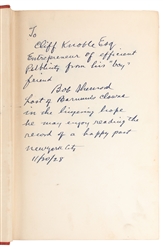 To
Cliff Knoble Esq.
Entrepreneur of efficient
Publicity from his "boy"
friend
Bob Sherwood
Last of Barnum's clowns
in the lingering hope
he may enjoy reading the
record of a happy past
New York City
11/20/28